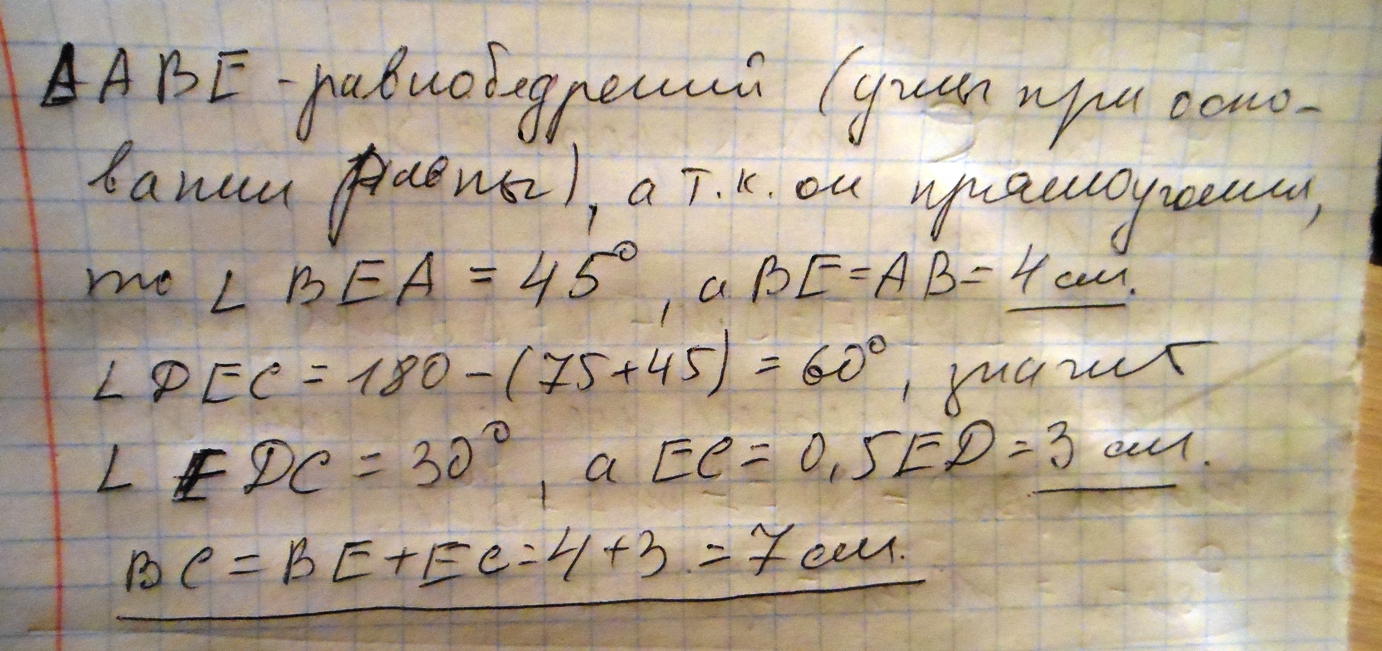 Δ ABE - равнобедрений (углы при осно-
вании равны), а т.к. он прямоуголен,
то ∠ BEA = 45°, а BE=AB= 4 см.
∠ DEC = 180 - (75+45) = 60°, значит
∠ EDC = 30°, а EC = 0,5ED = 3 см.
BC = BE+EC=4+3 = 7 см.